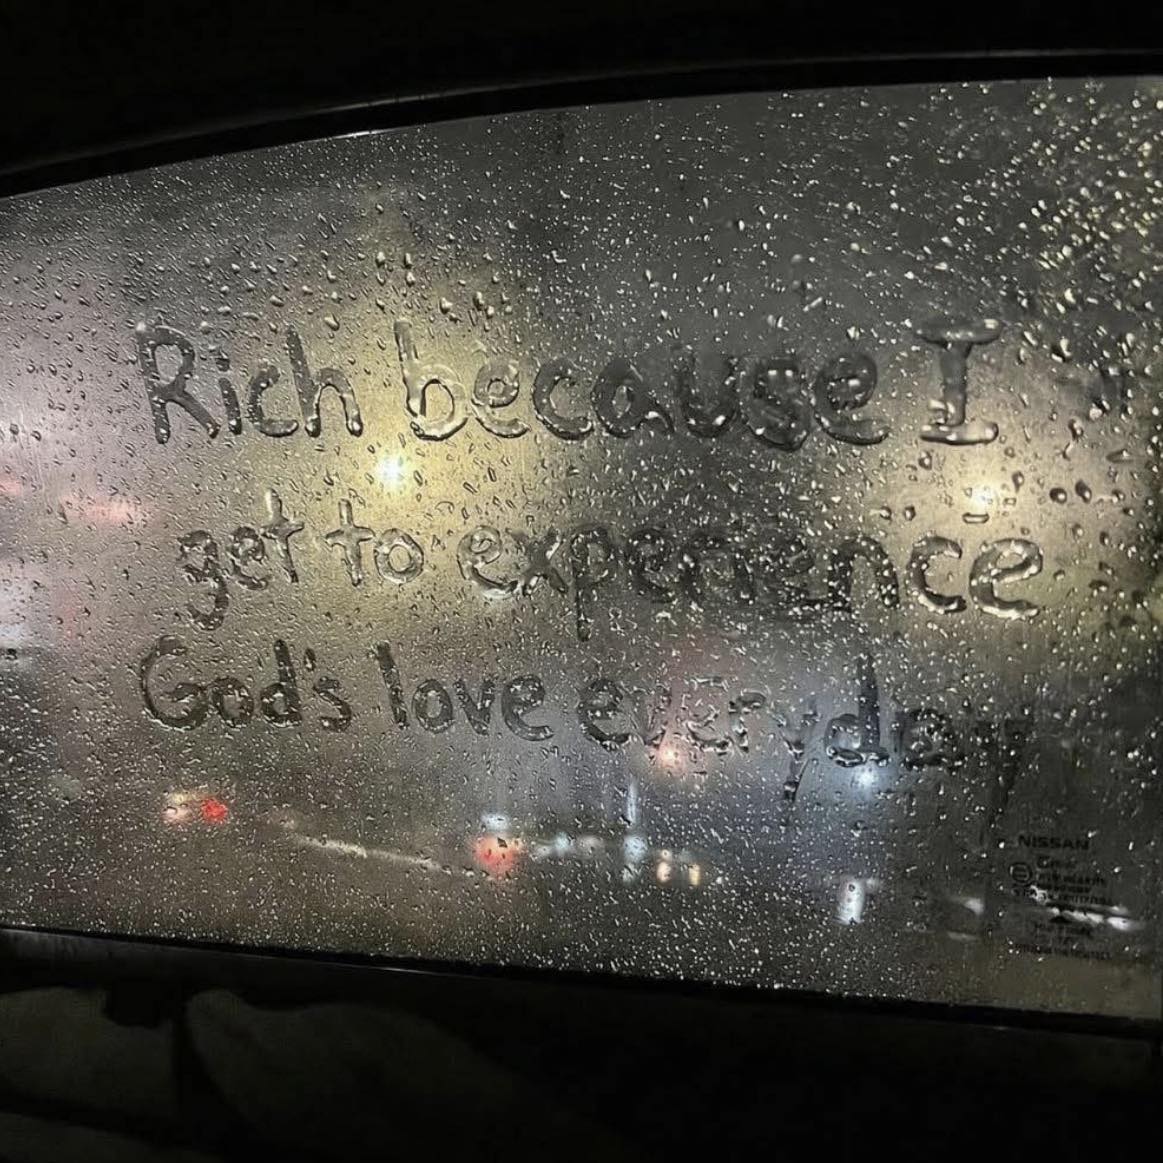 Rich because I
get to experience
God's love everyday
NISSAN